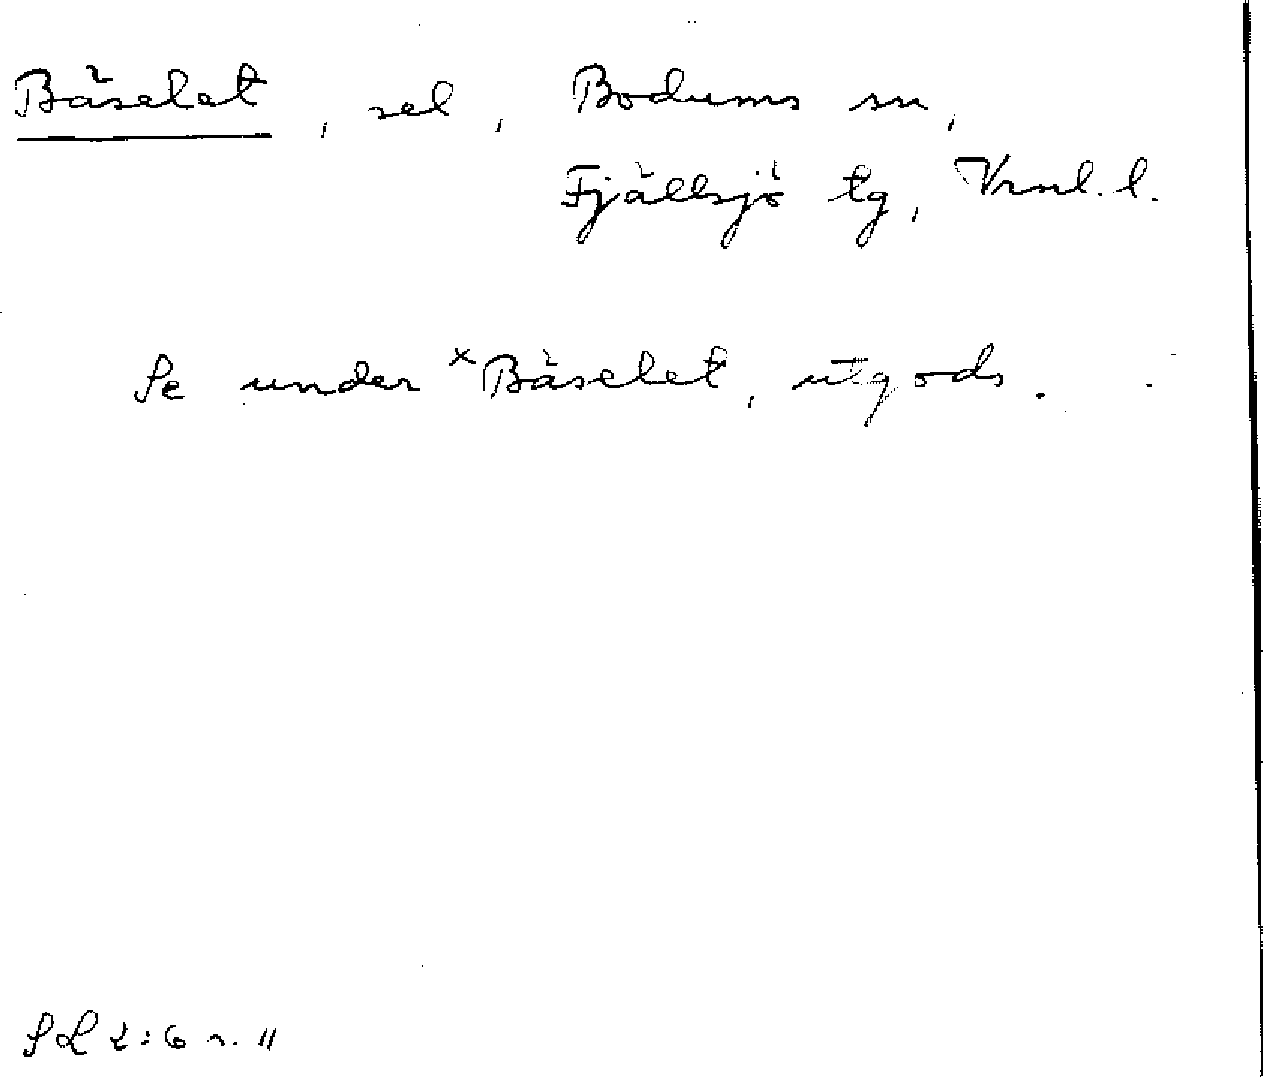 Bäselet, sel, Bodums sn,
Fjällsjö tg, Vrnl. l.
Se under ˣBäselet, utgods.
SL 2:6 s. 11